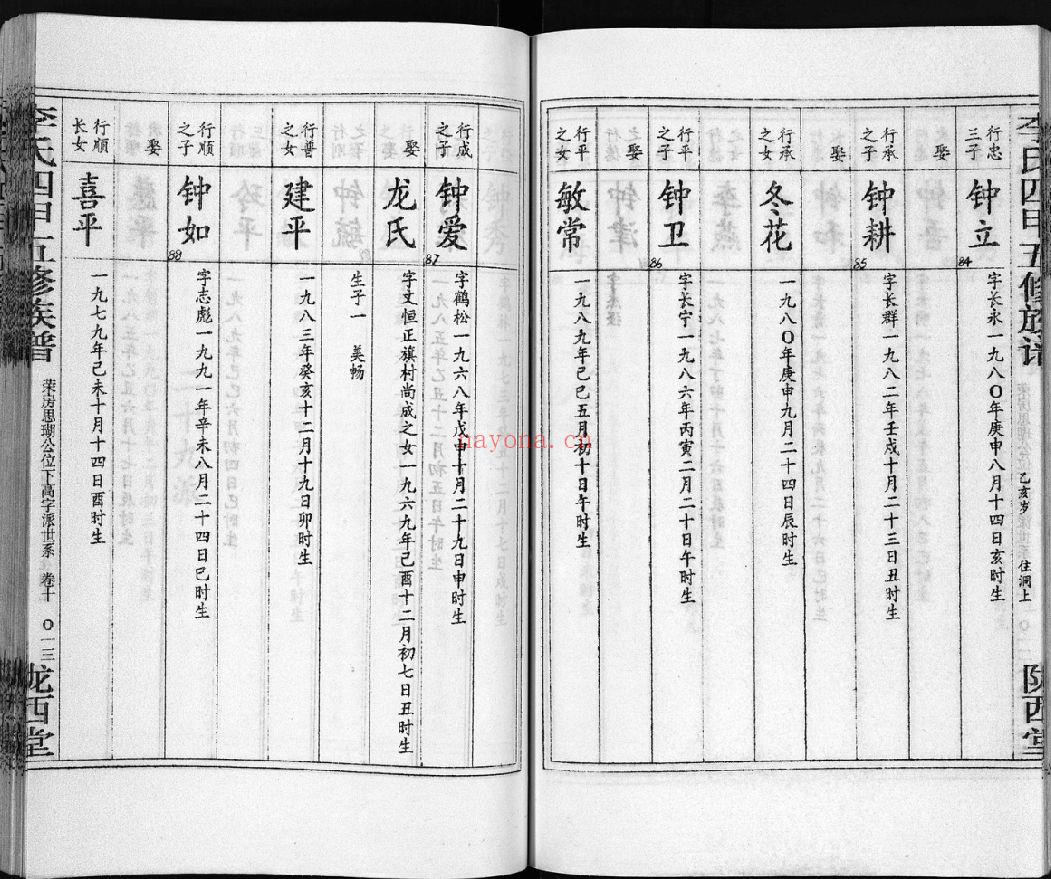 李氏四甲五修族谱
乙亥岁
住洞上
陇西堂
行忠三子
钟立
84
字长永一九八〇年庚申八月十四日亥时生
娶
行承之子
钟耕
85
字长群一九八二年壬戌十月二十三日丑时生
娶
行承之女
冬花
一九八〇年庚申九月二十四日辰时生
行平之子
钟卫
86
字长宁一九八六年丙寅二月二十日午时生
娶
行平之女
敏常
一九八九年己巳五月初十日午时生
行成之子
钟爱
87
字鹤松一九六八年戊申十月二十九日申时生
娶
龙氏
字文恒正旗村尚成之女一九六九年己酉十二月初七日丑时生
生子一 美畅
行普之女
建平
一九八三年癸亥十二月十九日卯时生
行顺之子
钟如
88
字志彪一九九一年辛未八月二十四日巳时生
娶
行順长女
喜平
一九七九年己未十月十四日酉时生
李氏四甲五修族譜
荣房思瑚公位下高字派世系 卷十
〇一三
陇西堂
nayona.cn